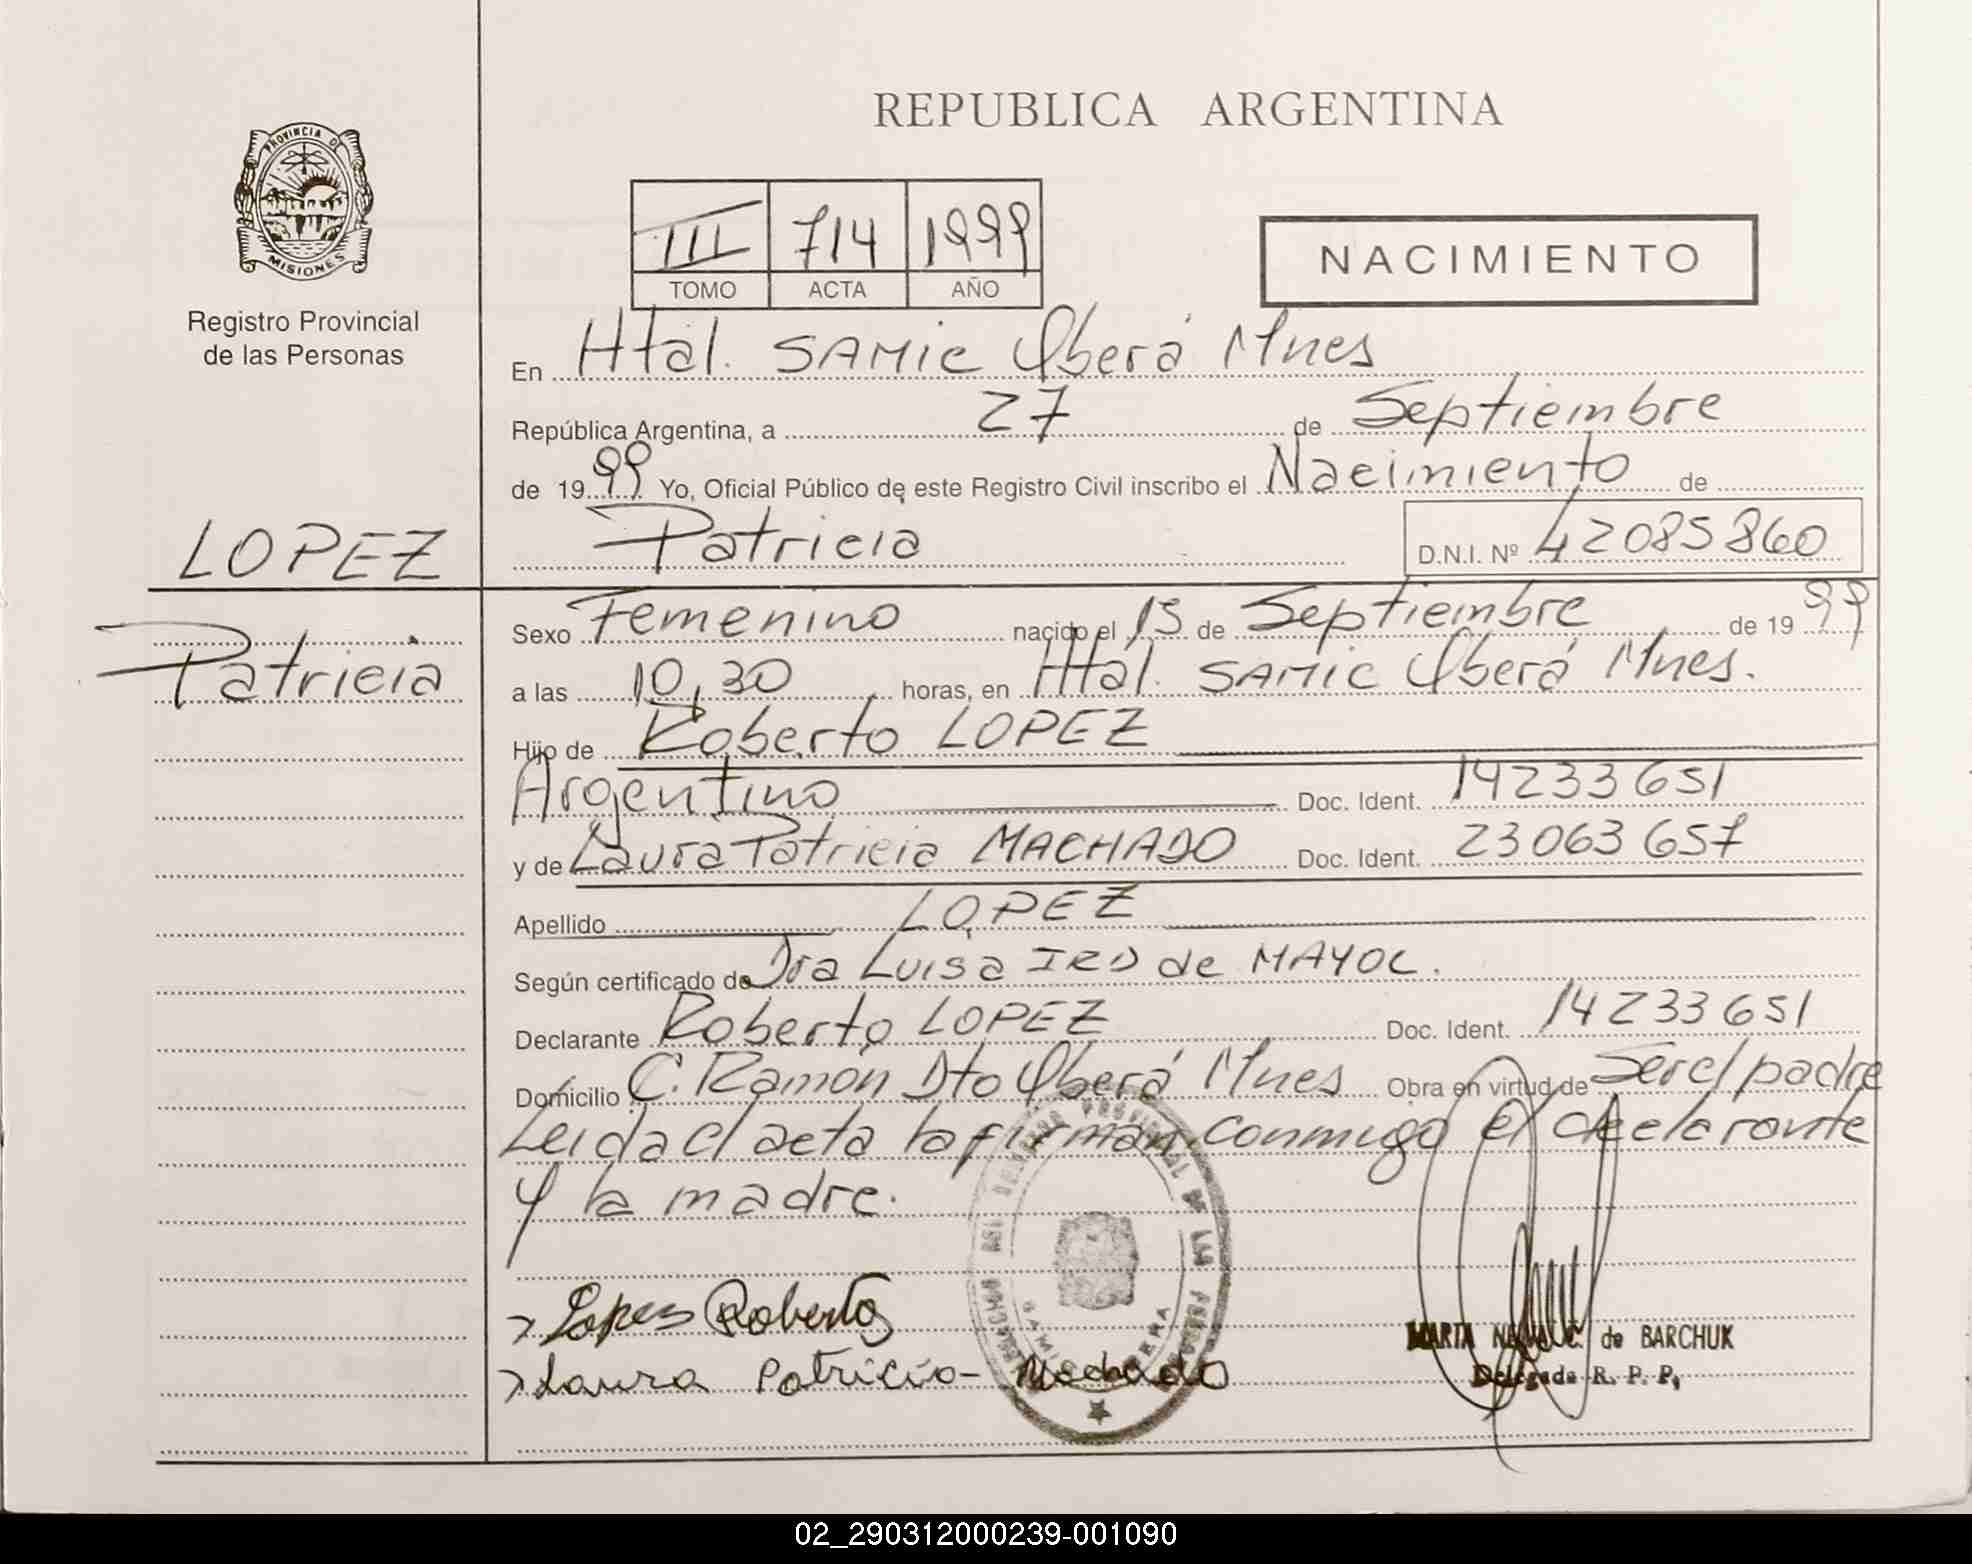 REPUBLICA ARGENTINA
PROVINCIA D
MISIONES
Registro Provincial
de las Personas
III 714 1999
TOMO ACTA AÑO
NACIMIENTO
En Htal. SAMIC Oberá Mnes
República Argentina, a 27 de Septiembre
de 1999 Yo, Oficial Público de este Registro Civil inscribo el Nacimiento de
Patricia D.N.I. Nº 42085860
LOPEZ
Patricia
Sexo Femenino nacido el 15 de Septiembre de 1999
a las 10,30 horas, en Htal. SAMIC Oberá Mnes.
Hijo de Roberto LOPEZ
Argentino Doc. Ident. 14233651
y de Laura Patricia MACHADO Doc. Ident. 23063657
Apellido LOPEZ
Según certificado de Dra Luisa IRD de MAYOL.
Declarante Roberto LOPEZ Doc. Ident. 14233651
Domicilio C. Ramón Dto Oberá Mnes Obra en virtud de Ser el padre
Leida el acta la firman conmigo el declarante
y la madre.
Lopez Roberto
Laura Patricia - Machado
MARTA C. de BARCHUK
Delegada R. P. P.
02_290312000239-001090